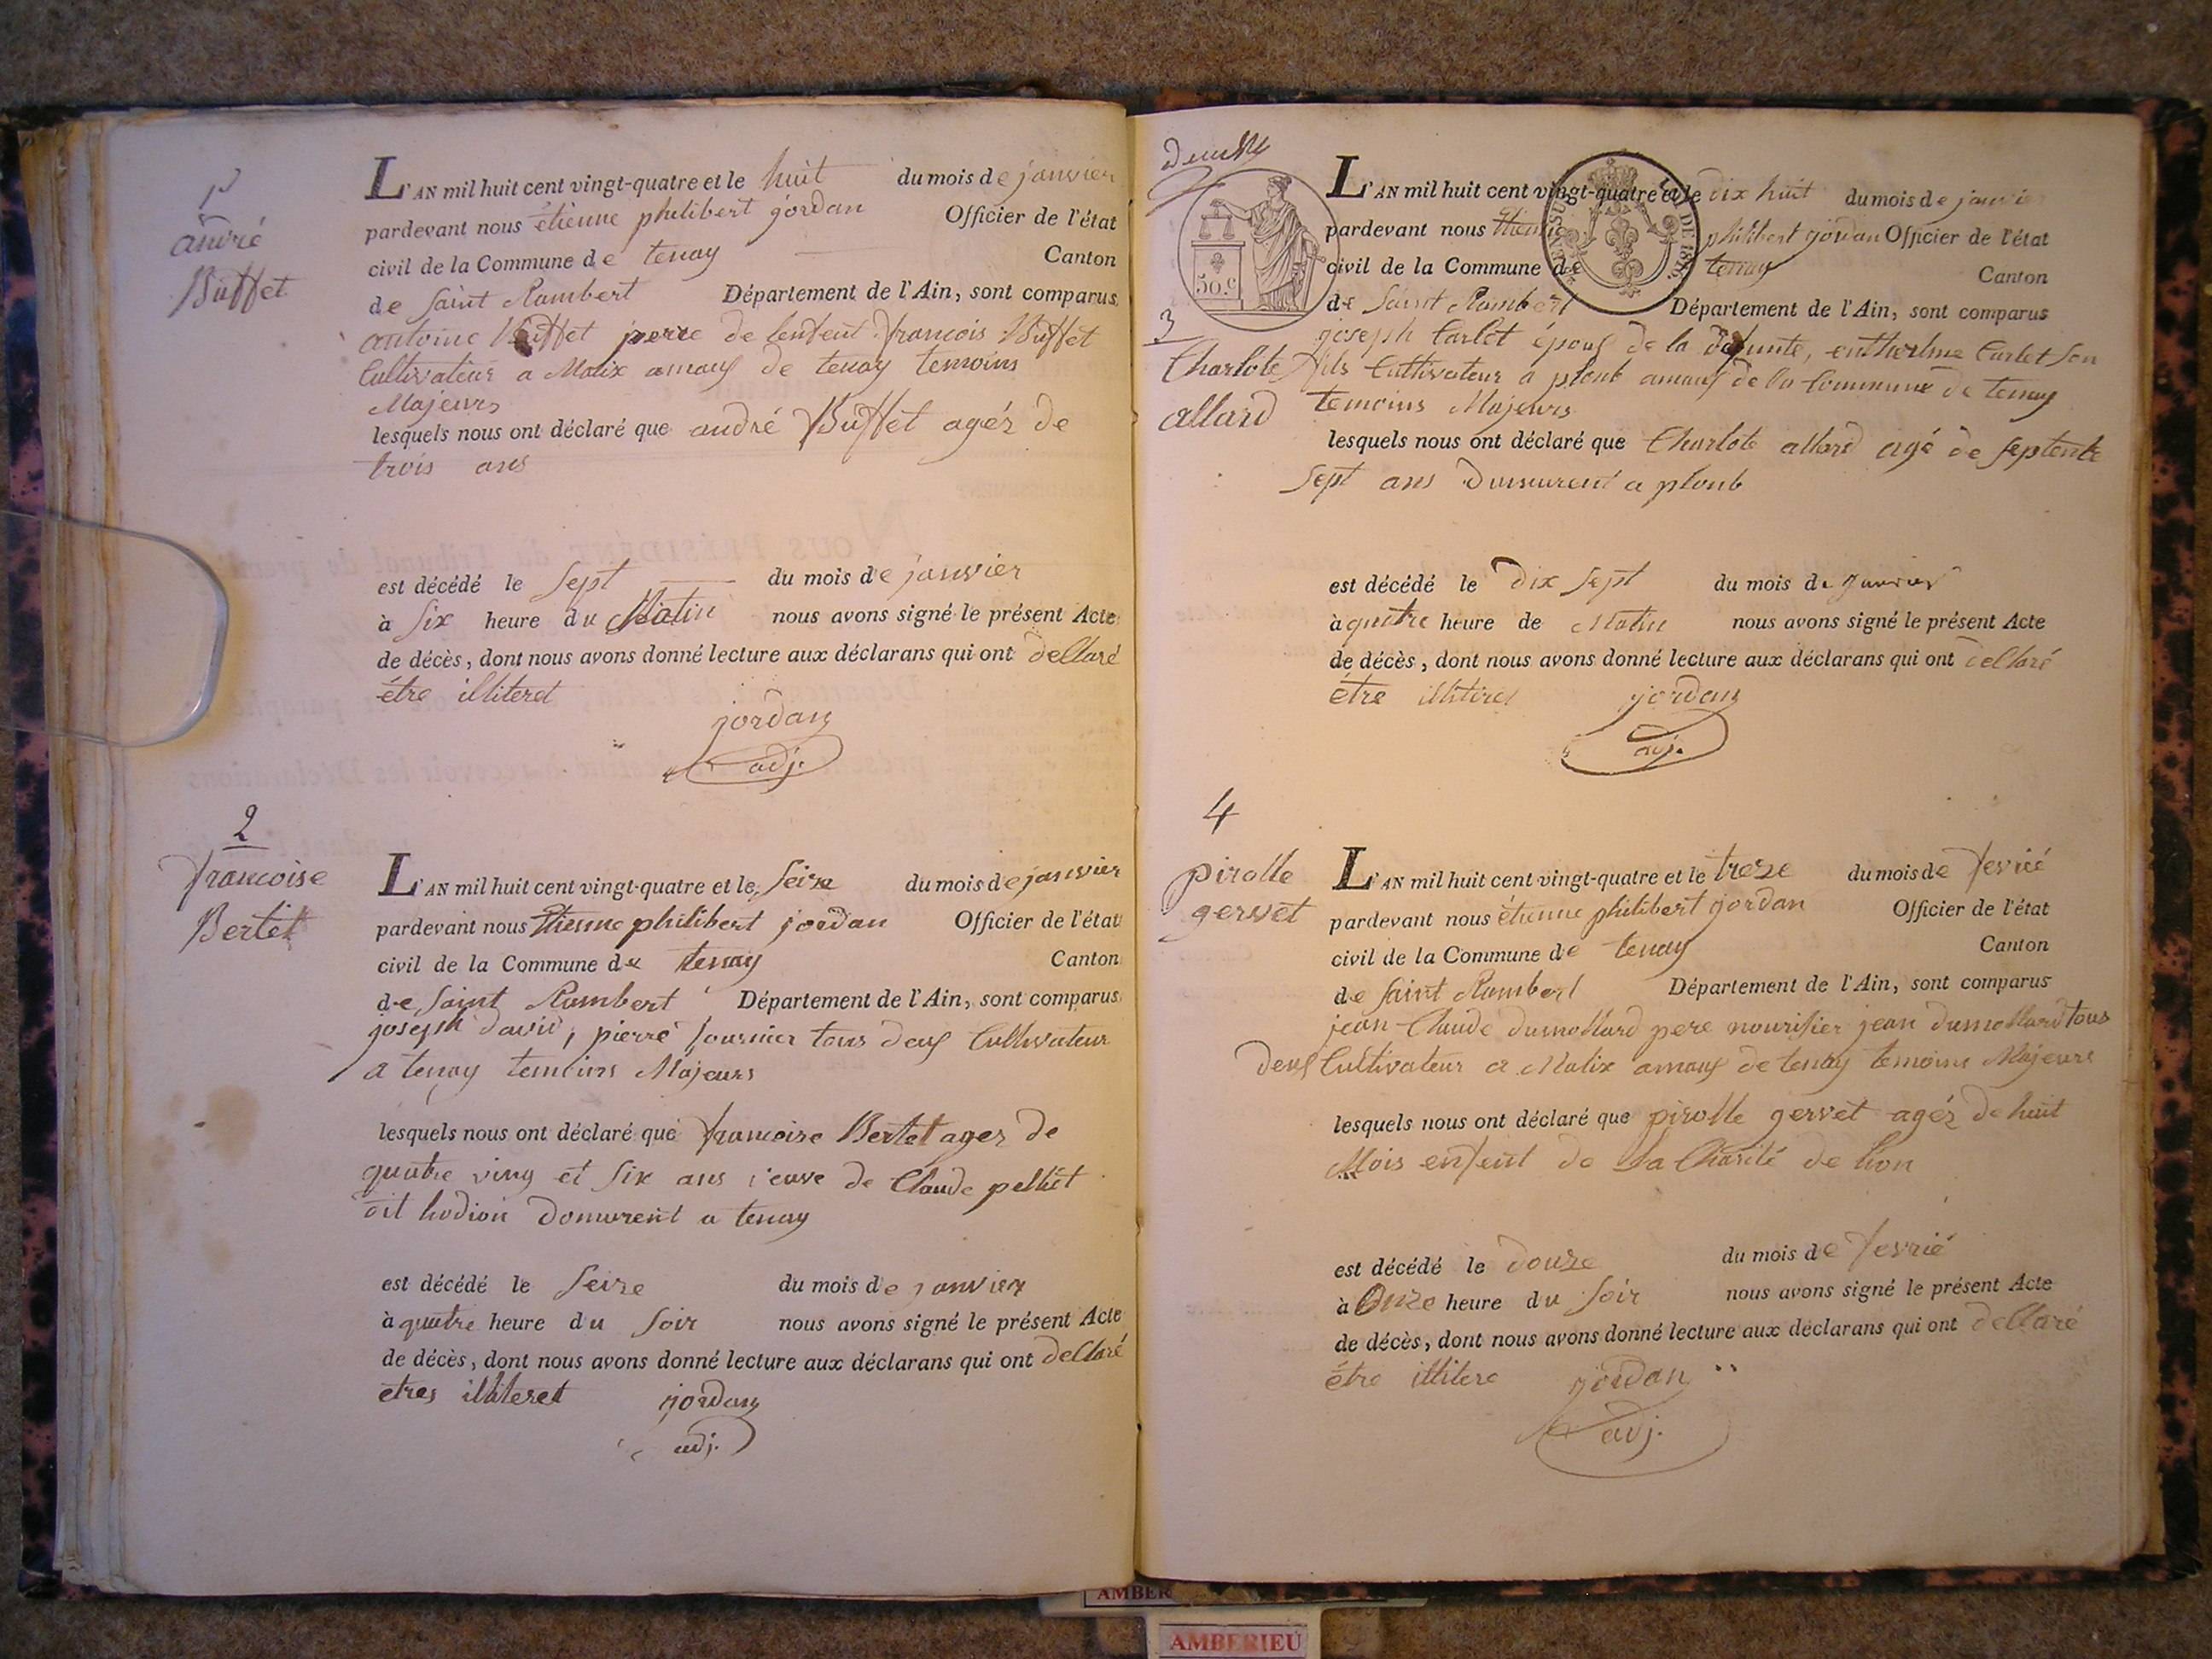 1
andré
Buffet
L'AN mil huit cent vingt-quatre et le huit du mois de janvier
pardevant nous étienne philibert jordan Officier de l'état
civil de la Commune de tenay Canton
de Saint Rambert Département de l'Ain, sont comparus
antoine Buffet perre de lenfent francois Buffet
Cultivateur a Malix amaux de tenay temoins
Majeurs
lesquels nous ont déclaré que andré Buffet agéz de
trois ans
est décédé le Sept du mois de janvier
à Six heure du Matin nous avons signé le présent Acte
de décès, dont nous avons donné lecture aux déclarans qui ont dellaré
étre illiteret
jordan
adj.
2
francoise
Bertet
L'AN mil huit cent vingt-quatre et le Seize du mois de janvier
pardevant nous étienne philibert jordan Officier de l'état
civil de la Commune de tenay Canton
de Saint Rambert Département de l'Ain, sont comparus
joseph david, pierre fournier tous deux Cultivateur
a tenay temoins Majeurs
lesquels nous ont déclaré que francoise Bertet agez de
quatre ving et Six ans veuve de Claude pelliet
dit hodion domurent a tenay
est décédé le Seize du mois de janvier
à quatre heure du Soir nous avons signé le présent Acte
de décès, dont nous avons donné lecture aux déclarans qui ont dellaré
etres illiteret
jordan
adj.
50.C
LOI DE 1816
3
Charlote
allard
L'AN mil huit cent vingt-quatre et le dix huit du mois de janvier
pardevant nous étienne philibert jordan Officier de l'état
civil de la Commune de tenay Canton
de Saint Rambert Département de l'Ain, sont comparus
joseph Carlet époux de la defunte, enthelme Carlet Son
fils Cultivateur a plomb amaux de la Commune de tenay
temoins Majeurs
lesquels nous ont déclaré que Charlote allard agé de Septente
Sept ans domurent a plomb
est décédé le dix Sept du mois de janvier
à quatre heure de Matin nous avons signé le présent Acte
de décès, dont nous avons donné lecture aux déclarans qui ont dellaré
étre illiteret
jordan
adj.
4
pirolle
gervet
L'AN mil huit cent vingt-quatre et le treze du mois de fevrié
pardevant nous étienne philibert jordan Officier de l'état
civil de la Commune de tenay Canton
de Saint Rambert Département de l'Ain, sont comparus
jean Claude dumollard pere nourisier jean dumollard tous
deux Cultivateur a Malix amaux de tenay temoins Majeurs
lesquels nous ont déclaré que pirolle gervet agéz de huit
Mois enfent de La Charité de lion
est décédé le douze du mois de fevrié
à Onze heure du Soir nous avons signé le présent Acte
de décès, dont nous avons donné lecture aux déclarans qui ont dellaré
étre illitere
jordan
adj.
AMBER
AMBERIEU